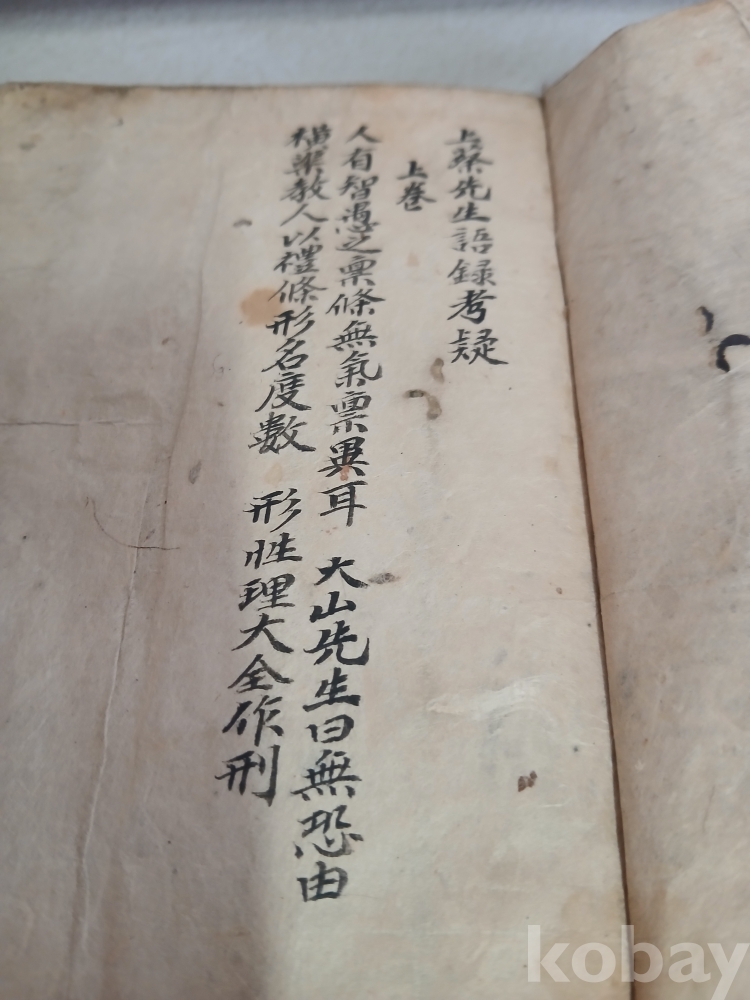 上蔡先生語録考疑
上卷
人有智愚之稟條無氣稟異耳 大山先生曰無恐由
橫渠教人以禮條形名度數 形性理大全作刑
kobay